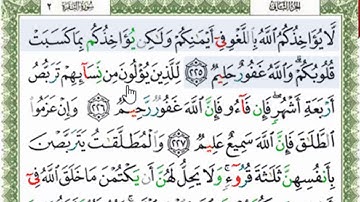 الجزء الثاني ٢ سورة البقرة
لَّا يُؤَاخِذُكُمُ ٱللَّهُ بِٱللَّغْوِ فِىٓ أَيْمَـٰنِكُمْ وَلَـٰكِن يُؤَاخِذُكُم بِمَا كَسَبَتْ
قُلُوبُكُمْ وَٱللَّهُ غَفُورٌ حَلِيمٌ ٢٢٥ لِّلَّذِينَ يُؤْلُونَ مِن نِّسَآئِهِمْ تَرَبُّصُ
أَرْبَعَةِ أَشْهُرٍ فَإِن فَآءُو فَإِنَّ ٱللَّهَ غَفُورٌ رَّحِيمٌ ٢٢٦ وَإِنْ عَزَمُوا۟
ٱلطَّلَـٰقَ فَإِنَّ ٱللَّهَ سَمِيعٌ عَلِيمٌ ٢٢٧ وَٱلْمُطَلَّقَـٰتُ يَتَرَبَّصْنَ
بِأَنفُسِهِنَّ ثَلَـٰثَةَ قُرُوٓءٍ وَلَا يَحِلُّ لَهُنَّ أَن يَكْتُمْنَ مَا خَلَقَ ٱللَّهُ فِىٓ